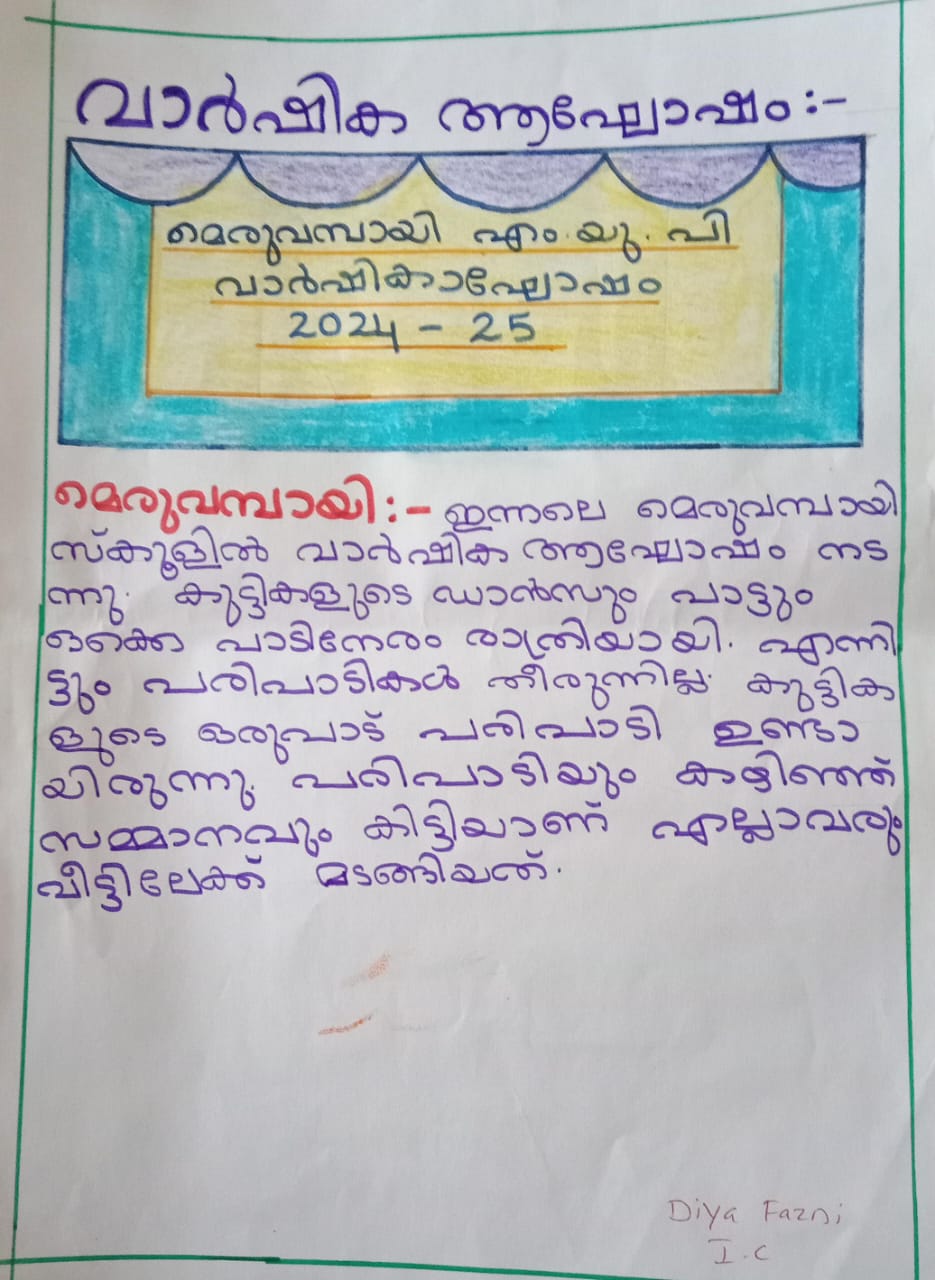 വാർഷിക ആഘോഷം:-
മെരുവമ്പായി എം.യു.പി
വാർഷികാഘോഷം
2024 - 25
മെരുവമ്പായി:- ഇന്നലെ മെരുവമ്പായി
സ്കൂളിൽ വാർഷിക ആഘോഷം നട
ന്നു. കുട്ടികളുടെ ഡാൻസും പാട്ടും
ഒക്കെ പാടിനേരം രാത്രിയായി. എന്നി
ട്ടും പരിപാടികൾ തീരുന്നില്ല. കുട്ടിക
ളുടെ ഒരുപാട് പരിപാടി ഉണ്ടാ
യിരുന്നു. പരിപാടിയും കഴിഞ്ഞ്
സമ്മാനവും കിട്ടിയാണ് എല്ലാവരും
വീട്ടിലേക്ക് മടങ്ങിയത്.
Diya Fazni
I.C